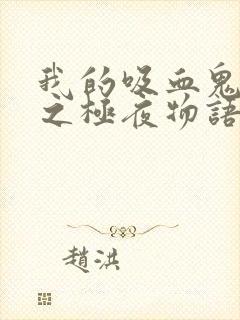 我的吸血鬼
之極夜物語
趙洪